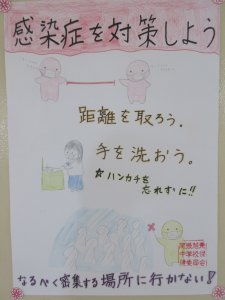 感染症を対策しよう
距離を取ろう.
手を洗おう。
☆ハンカチを
忘れずに!!
なるべく密集する場所に行かない!